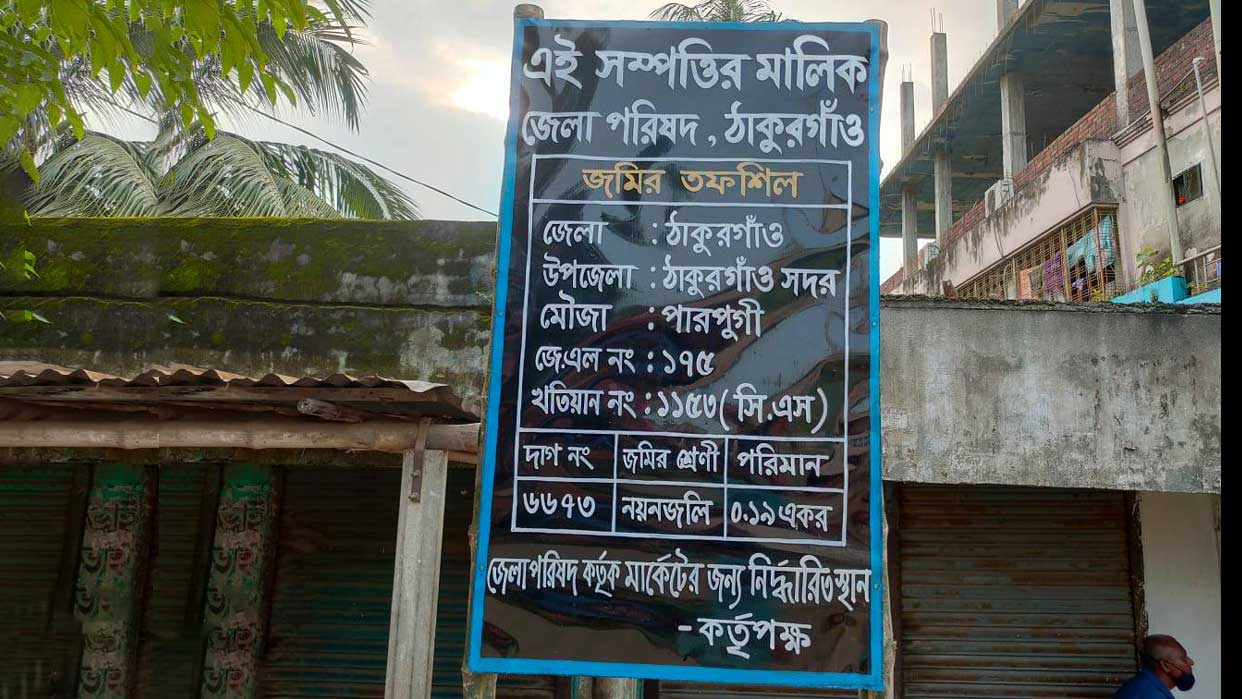 এই সম্পত্তির মালিক
জেলা পরিষদ, ঠাকুরগাঁও
জমির তফশিল
জেলা : ঠাকুরগাঁও
উপজেলা : ঠাকুরগাঁও সদর
মৌজা : পারপুগী
জে.এল নং : ১৭৫
খতিয়ান নং : ১১৫৩ (সি.এস)
দাগ নং জমির শ্রেণী পরিমান
৬৬৭৩ নয়নজলি ০.১৯ একর
জেলা পরিষদ কর্তৃক মার্কেটের জন্য নির্দ্ধারিত স্থান
- কর্তৃপক্ষ